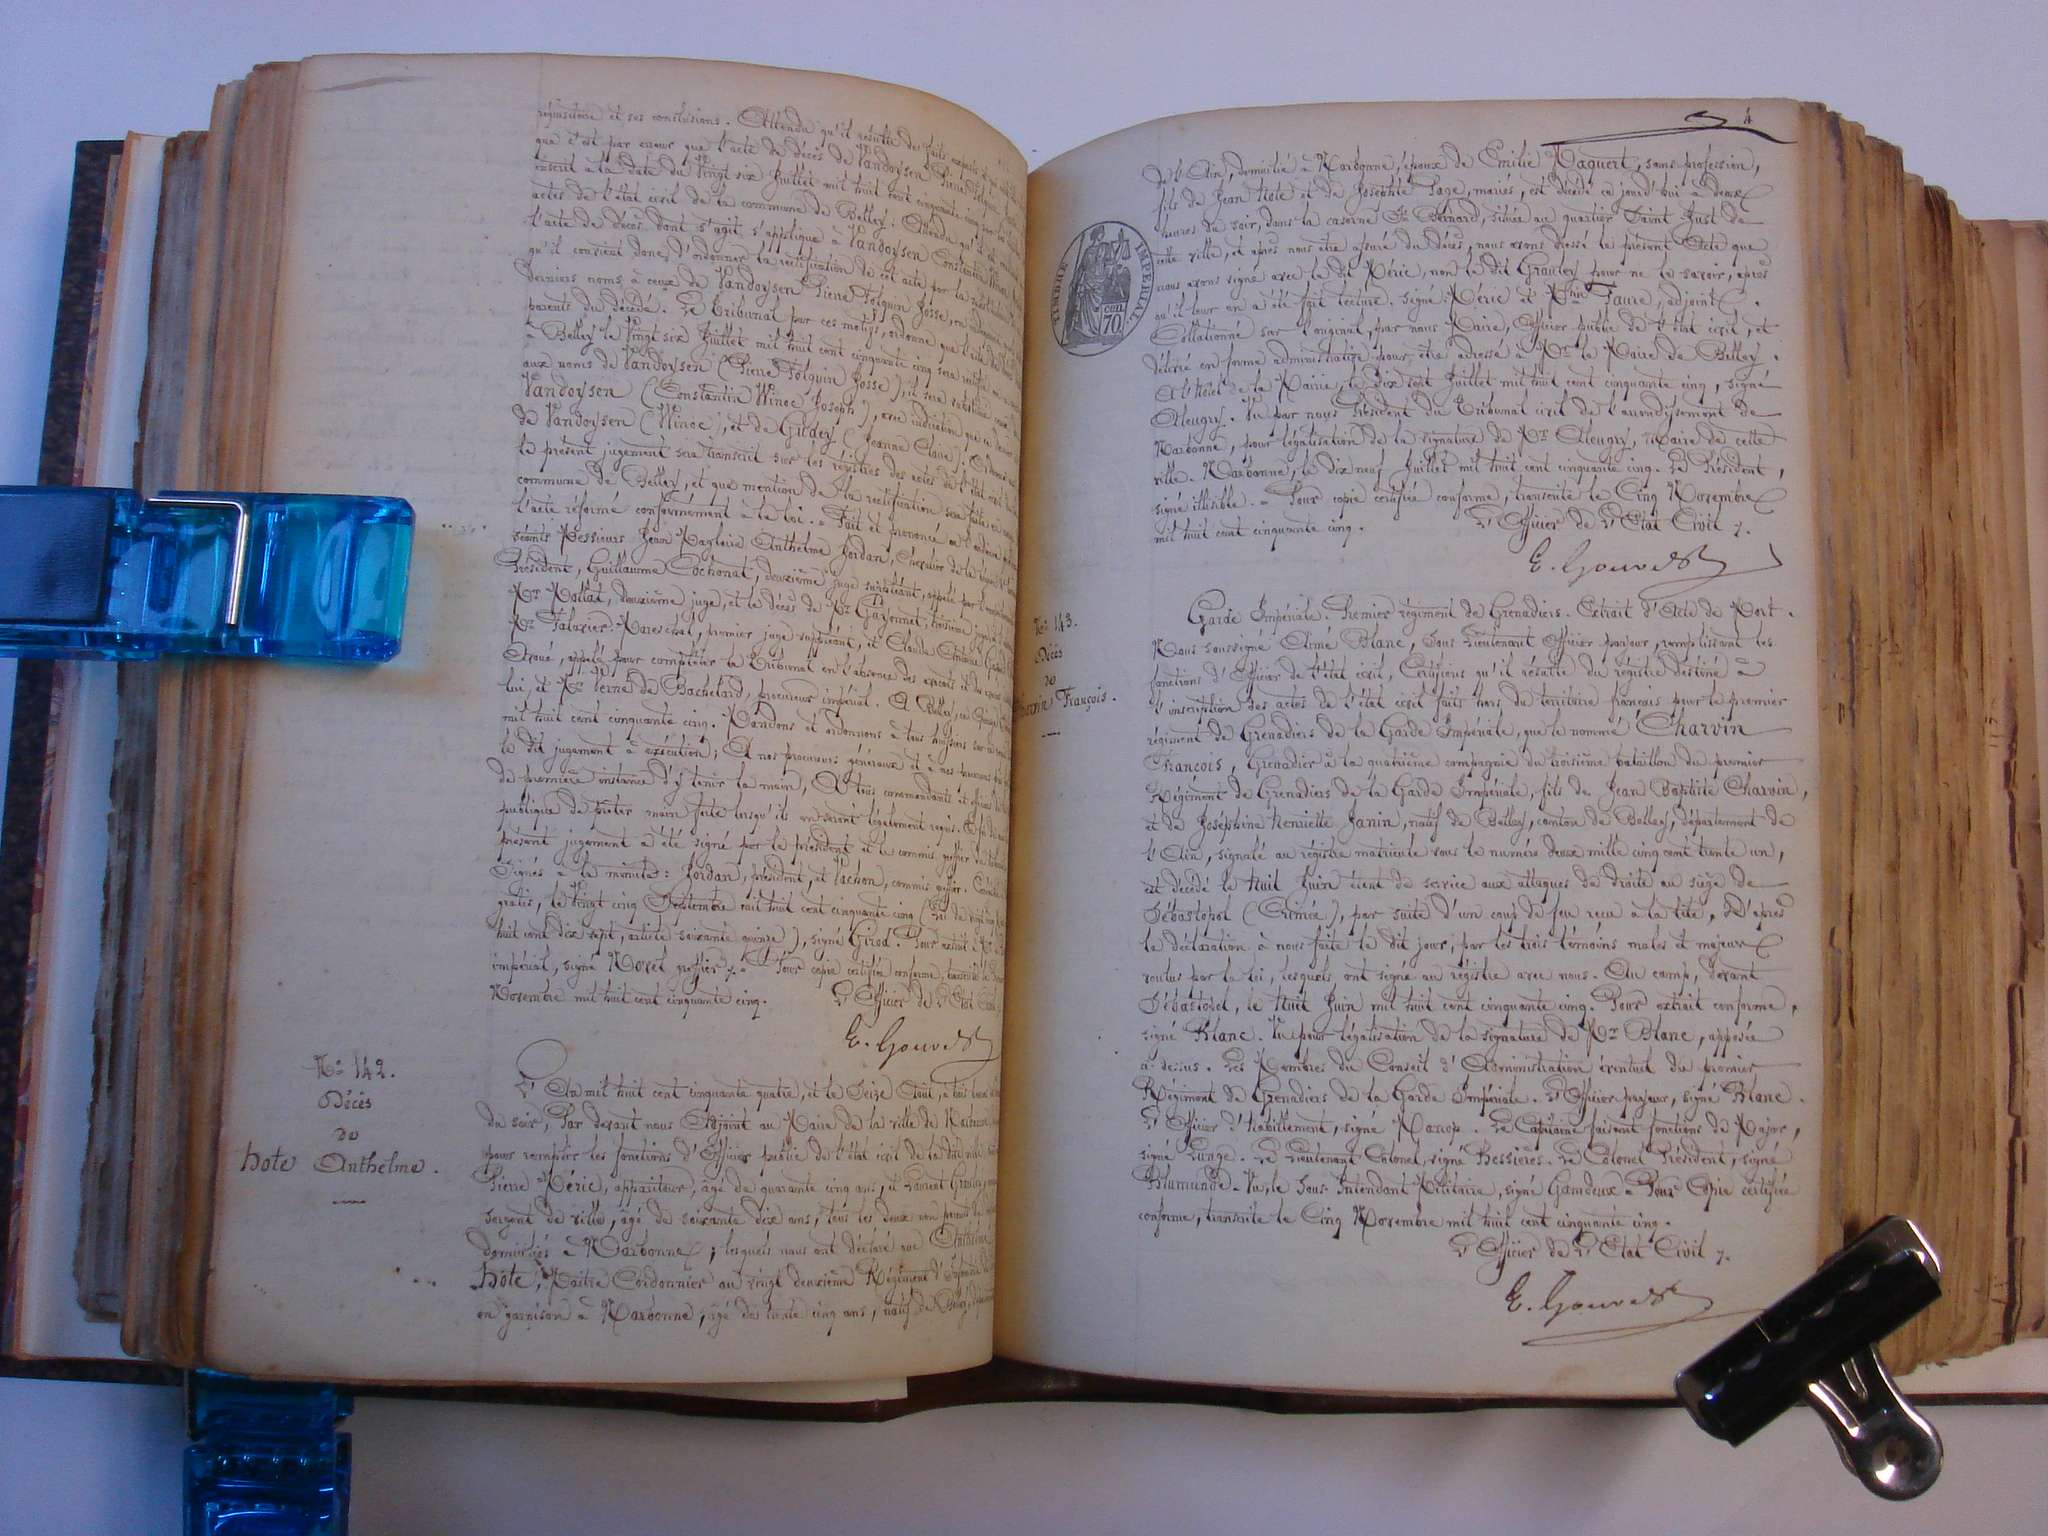 réquisitoire et ses conclusions. Attendu qu'il résulte des faits exposés
que c'est par erreur que l'acte de décès de Vandoysen Pierre Folquin
inscrit à la date du Vingt six Juillet mil huit cent cinquante cinq
actes de l'état civil de la commune de Belley; Attendu qu'il est
l'acte de décès dont s'agit s'applique à Vandoysen Constantin Winoc
qu'il convient donc d'ordonner la rectification de cet acte par la
derniers noms à ceux de Vandoysen Pierre Folquin Josse, en
parents du décédé. Le Tribunal par ces motifs, ordonne que l'acte de décès
à Belley le Vingt six Juillet mil huit cent cinquante cinq sera rectifié
aux noms de Vandoysen (Pierre Folquin Josse), il sera substitué ceux
Vandoysen (Constantin Winoc Joseph), avec indication que ce dernier
de Vandoysen (Winoc), et de Gudey (Jeanne Claire). Ordonne
le présent jugement sera transcrit sur les régistres des actes de l'état civil
commune de Belley, et que mention de la rectification sera faite en
l'acte réformé conformément à la loi. = Fait et prononcé en l'audience
séants Messieurs Jean Magloire Anthelme Jordan, Chevalier de la
Président, Guillaume Cochonat, deuxième juge suppléant, appelé par
Mr Mollat, deuxième juge, et le décès de Mr Gavonnet, troisième
Mr Falavier-Mareschal, premier juge suppléant, et Claude Antoine
Avoué, appelé pour compléter le Tribunal en l'absence des avocats et des
lui, et Mr Verne de Bachelard, procureur impérial. A Belley, ce
mil huit cent cinquante cinq. Mandons et ordonnons à tous huissiers sur ce
le dit jugement à exécution; A nos procureurs généraux et à nos procureurs
de première instance d'y tenir la main, A tous commandants et officiers
publique de prêter main forte lorsqu'ils en seront légalement requis. En foi de
présent jugement a été signé par le président et le commis greffier
Signés à la minute: Jordan, président, et Vachon, commis greffier.
gratis, le Vingt cinq Septembre mil huit cent cinquante cinq (Loi de
huit cent dix sept, article soixante quinze), signé Girod. Pour extrait
impérial, signé Morel greffier. = Pour copie certifiée conforme, transcrite le
Novembre mil huit cent cinquante cinq. L'Officier de l'Etat Civil
E. Gouvert
No 142.
Décès
de
hote Anthelme.
L'An mil huit cent cinquante quatre, et le Seize Août, à trois heures
du soir, Par devant nous Adjoint au Maire de la ville de Narbonne,
pour remplir les fonctions d'Officier public de l'état civil de la dite
Pierre Méric, appariteur, âgé de quarante cinq ans, et Laurent Grauley,
sergent de ville, âgé de soixante dix ans, tous les deux non parents
domiciliés à Narbonne; lesquels nous ont déclaré que Anthelme
hote, Maître Cordonnier au vingt deuxième Régiment d'Infanterie
en garnison à Narbonne, âgé de trente cinq ans, natif de
4
TIMBRE IMPERIAL
70 cen
de l'Ain, domicilié à Narbonne, époux de Emilie Maquert, sans profession,
fils de Jean Hote et de Josephte Page, mariés, est décédé ce jourd'hui à deux
heures du soir, dans la caserne St Bernard, située au quartier Saint Just de
cette ville, et après nous être assuré du décès, nous avons dressé le présent Acte que
nous avons signé avec le dit Méric, non le dit Grauley pour ne le savoir, après
qu'il leur en a été fait lecture. signé: Méric et Faure, adjoint.
Collationné sur l'original, par nous Maire, Officier public de l'état civil, et
délivré en forme administrative pour être adressé à Mr le Maire de Belley.
A l'hôtel de la Mairie, le Dix sept Juillet mil huit cent cinquante cinq, signé
Aleugry. Vu par nous Président du Tribunal civil de l'arrondissement de
Narbonne, pour légalisation de la signature de Mr Aleugry, Maire de cette
ville. Narbonne, le dix neuf Juillet mil huit cent cinquante cinq. Le Président,
signé illisible. = Pour copie certifiée conforme, transcrite le Cinq Novembre
mil huit cent cinquante cinq. L'Officier de L'Etat Civil
E. Gouvert
No 143.
Décès
de
François.
Garde Impériale. Premier régiment de Grenadiers. Extrait d'Acte de Mort.
Nous soussigné Aimé Blanc, Sous Lieutenant Officier payeur, remplissant les
fonctions d'Officier de l'état civil, Certifions qu'il résulte du régistre destiné à
l'inscription des actes de l'état civil faits hors du territoire français pour le premier
régiment de Grenadiers de la Garde Impériale, que le nommé Charvin
François, Grenadier à la quatrième compagnie du troisième bataillon du premier
Régiment de Grenadiers de la Garde Impériale, fils de Jean Baptiste Charvin,
et de Joséphine Henriette Janin, natif de Belley, canton de Belley, département de
l'Ain, signalé au régistre matricule sous le numéro deux mille cinq cent trente un,
est décédé le huit Juin étant de service aux attaques de droite au siège de
Sébastopol (Crimée), par suite d'un coup de feu reçu à la tête, D'après
la déclaration à nous faite le dit jour, par les trois témoins mâles et majeurs
voulus par la loi, lesquels ont signé au régistre avec nous. Au camp, devant
Sébastopol, le huit Juin mil huit cent cinquante cinq. Pour extrait conforme,
signé Blanc. Vu pour légalisation de la signature de Mr Blanc, apposée
ci-dessus. Les Membres du Conseil d'Administration éventuel du premier
Régiment de Grenadiers de la Garde Impériale. L'Officier payeur, signé Blanc.
L'Officier d'habillement, signé Le Capitaine faisant fonctions de Major,
signé Lunge. Le Lieutenant Colonel, signé Bessières. Le Colonel Président, signé
Blumunde. Vu, le Sous-Intendant Militaire, signé = Pour Copie certifiée
conforme, transcrite le Cinq Novembre mil huit cent cinquante cinq.
L'Officier de L'Etat Civil
E. Gouvert